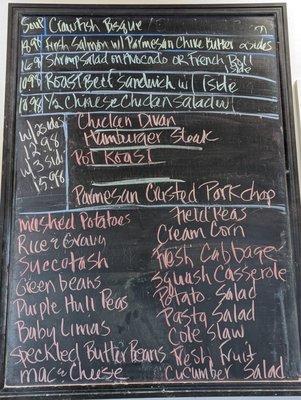 Soup Crawfish Bisque
18.98 Fresh Salmon w/ Parmesan Chive Butter 2 sides
16.98 Shrimp Salad on Avocado or French Roll 1 side
10.98 Roast Beef Sandwich w/ 1 side
10.98 Chinese Chicken Salad w/
w/ 2 sides 12.98
w/ 3 sides 15.98
Chicken Divan
Hamburger Steak
Pot Roast
Parmesan Crusted Pork chop
Mashed Potatoes
Rice & Gravy
Succotash
Green beans
Purple Hull Peas
Baby Limas
Speckled Butter Beans
Mac & Cheese
Field Peas
Cream Corn
Fresh Cabbage
Squash Casserole
Potato Salad
Pasta Salad
Cole Slaw
Fresh Fruit
Cucumber Salad